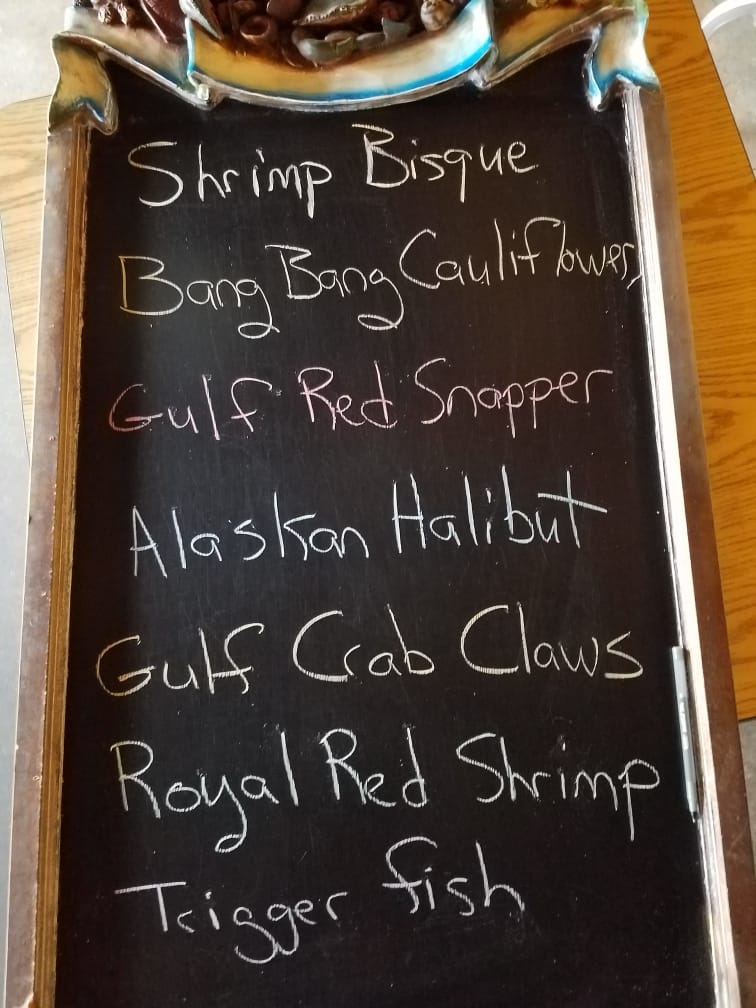 Shrimp Bisque
Bang Bang Cauliflower
Gulf Red Snapper
Alaskan Halibut
Gulf Crab Claws
Royal Red Shrimp
Trigger fish